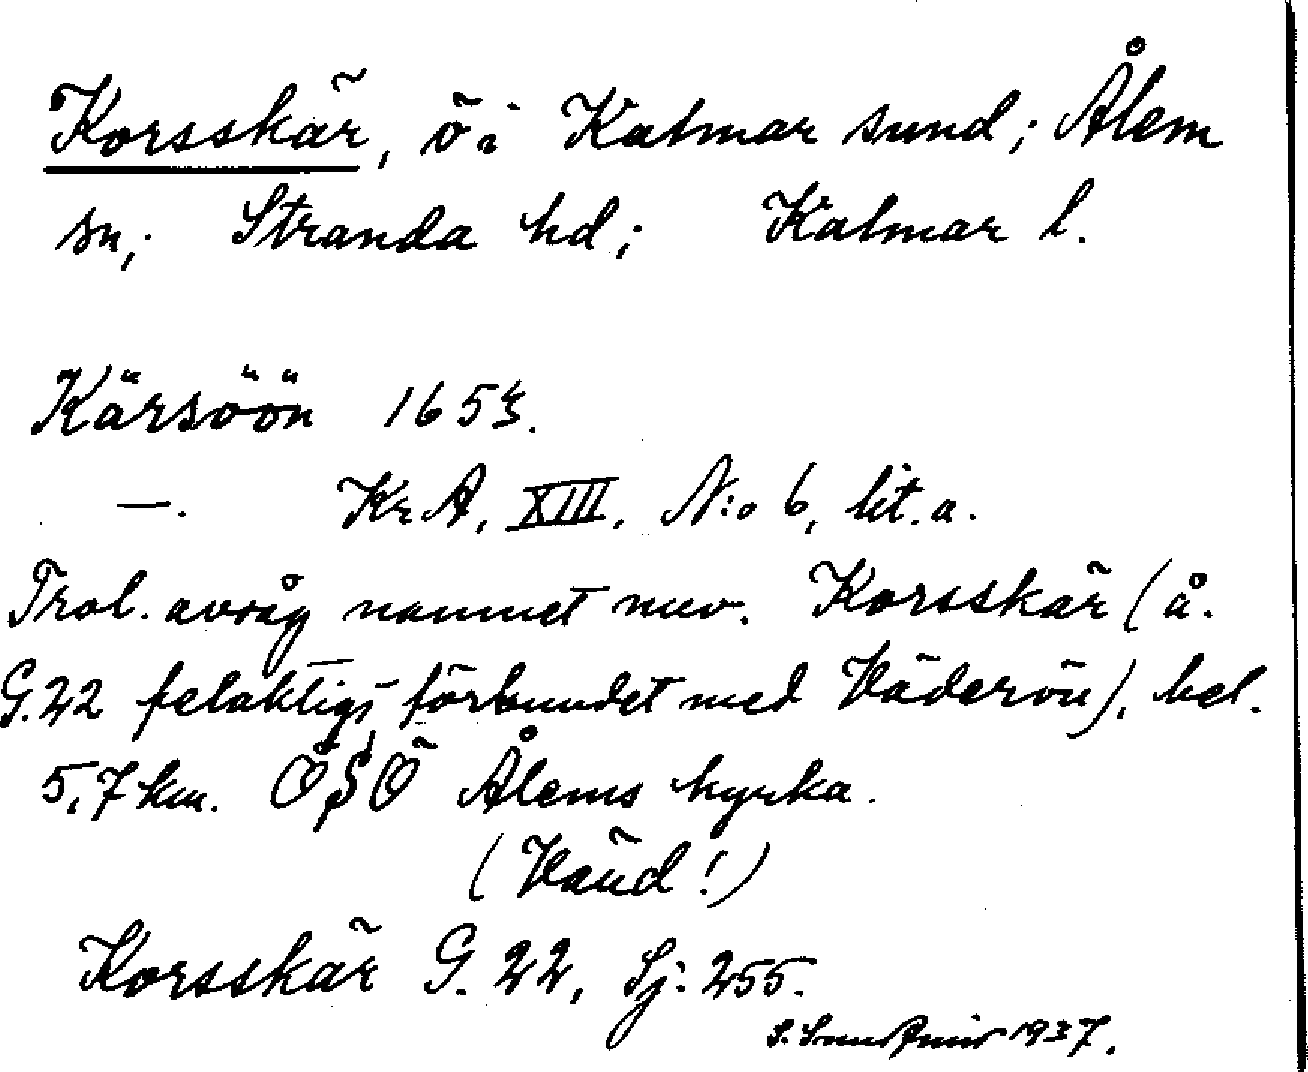 Korsskär, ö i Kalmar sund; Ålem
sn; Stranda hd; Kalmar l.
Kärsöön 165
—. Kr A, XIII, N:o 6, lit. a.
Trol. avsåg namnet nuv. Korsskär (å.
G. 22 felaktigt förbundet med Väderön), bel.
5,7 km. ÖSÖ Ålems kyrka.
(Vänd!)
Korsskär G. 22, Sj: 255.
S. 1937.